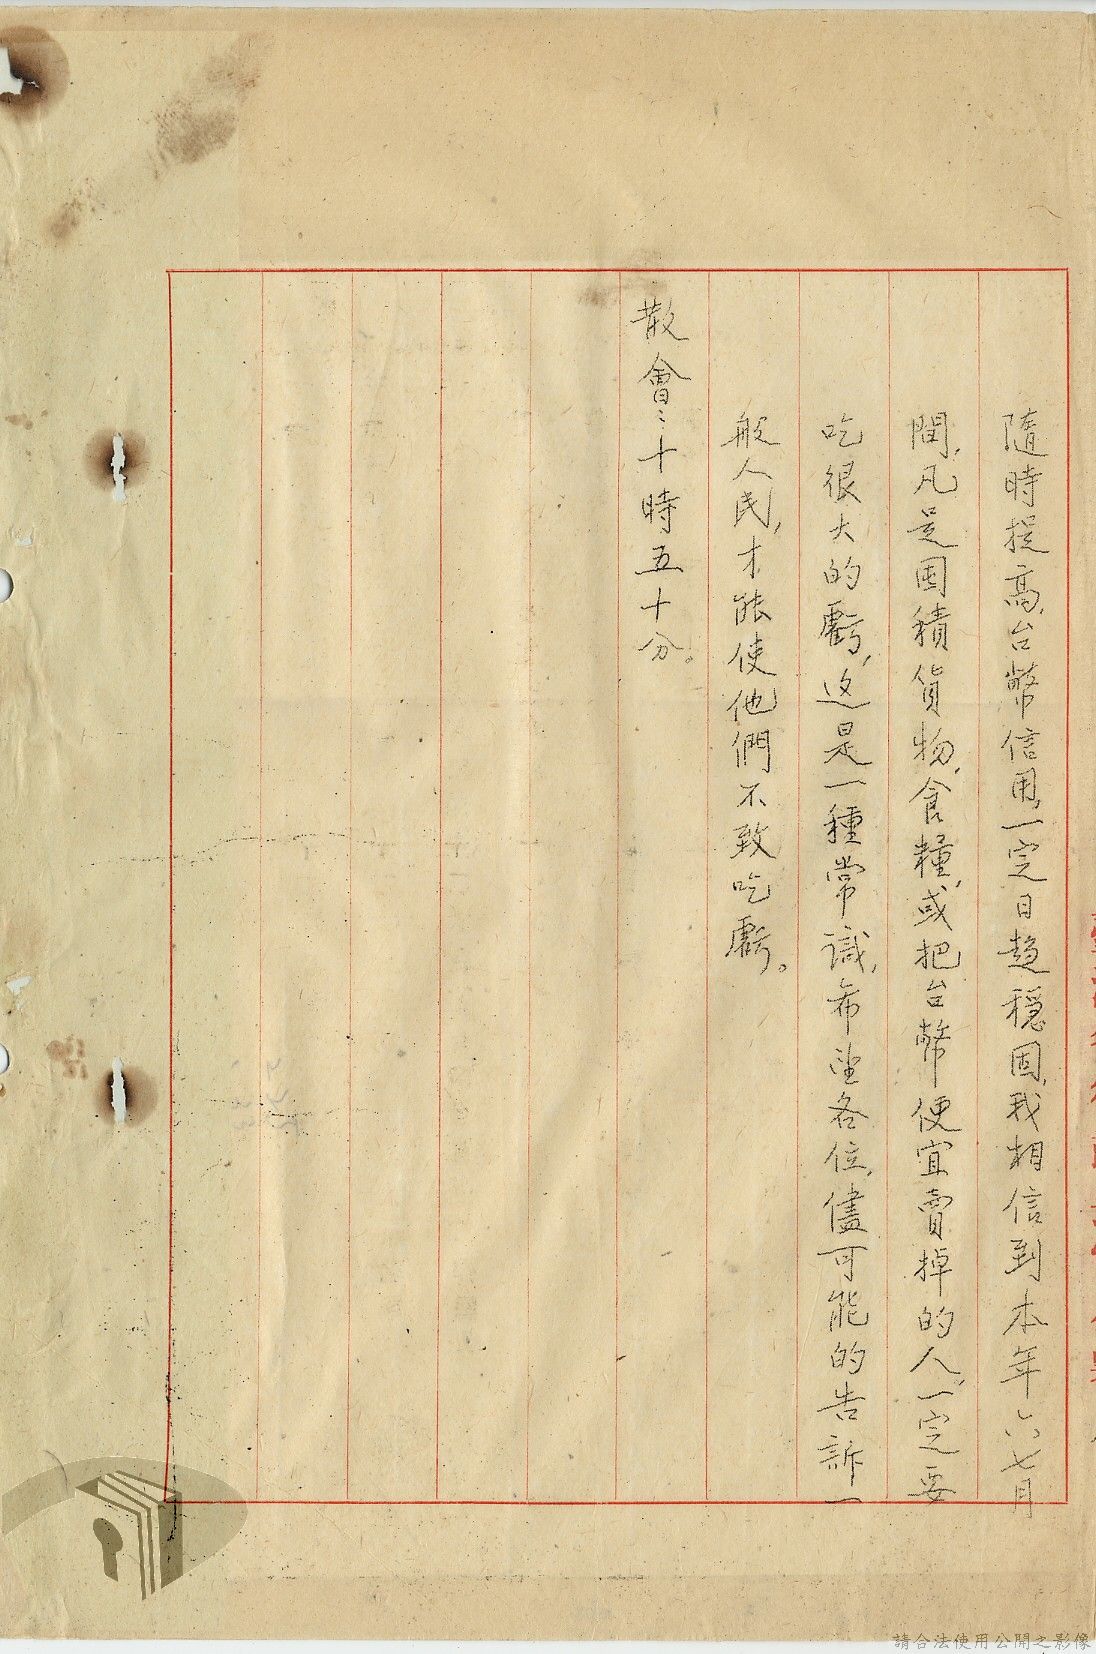 隨時提高，台幣信用，一定日趨穩固，我相信到本年六七月
間，凡是囤積貨物，食糧，或把台幣便宜賣掉的人，一定要
吃很大的虧，这是一種常識，希望各位，儘可能的告訴一
般人民，才能使他們不致吃虧。
散會：十時五十分。
請合法使用公開之影像